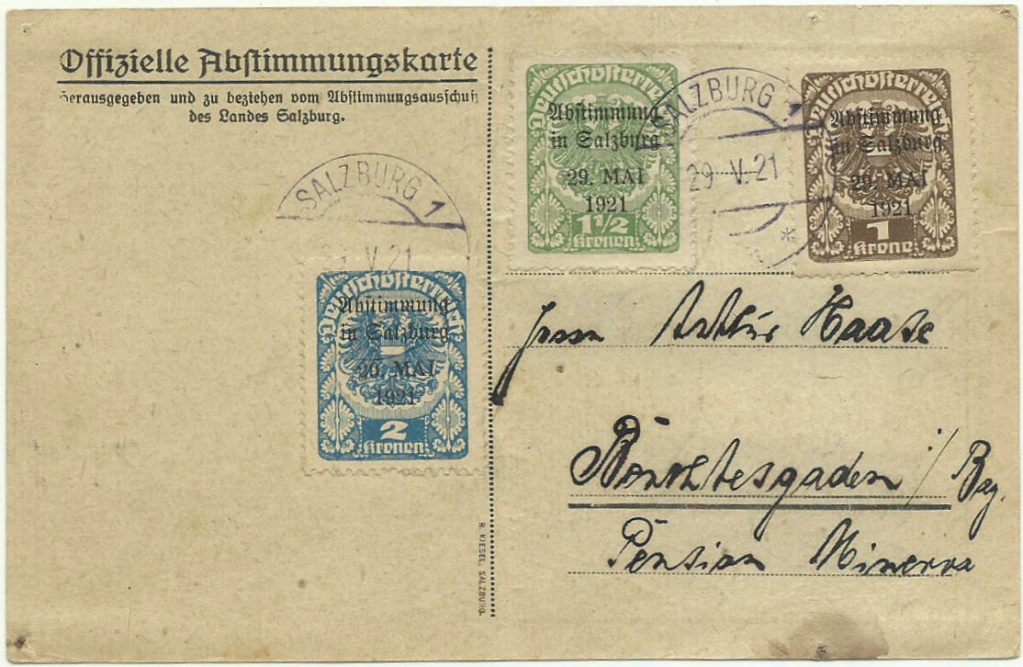 Offizielle Abstimmungskarte
Herausgegeben und zu beziehen vom Abstimmungsausschuß
des Landes Salzburg.
SALZBURG 1
V.21
Deutschösterreich
Abstimmung
in Salzburg
29. MAI
1921
2
Kronen
Deutschösterreich
Abstimmung
in Salzburg
29. MAI
1921
1½
Kronen
SALZBURG 1
29 V.21
*
Deutschösterreich
Abstimmung
in Salzburg
29. MAI
1921
1
Krone
Herrn Arthur Haase
Berchtesgaden / Bay.
Pension Minerva
R. KIESEL, SALZBURG.